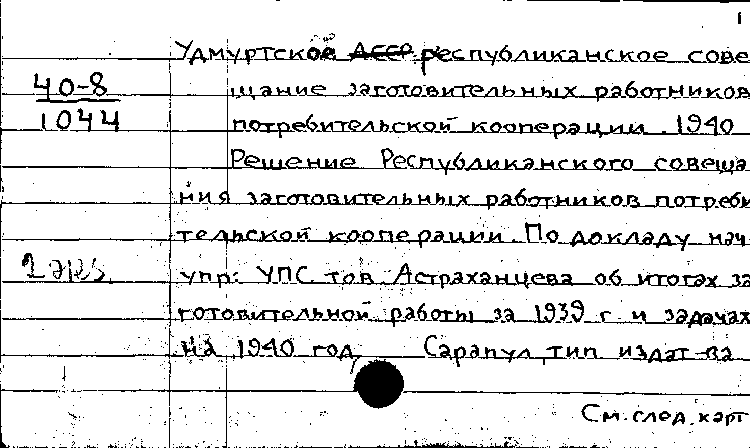 1
Удмуртское АССР республиканское сове
40-8
щание заготовительных работников
1044
потребительской кооперации. 1940
Решение Республиканского совеща
ния заготовительных работников потреби
тельской кооперации. По докладу нач
2 экз.
упр: УПС тов. Астраханцева об итогах за
готовительной работы за 1939 г. и задачах
на 1940 год, Сарапул, тип издат-ва
См. след. карт